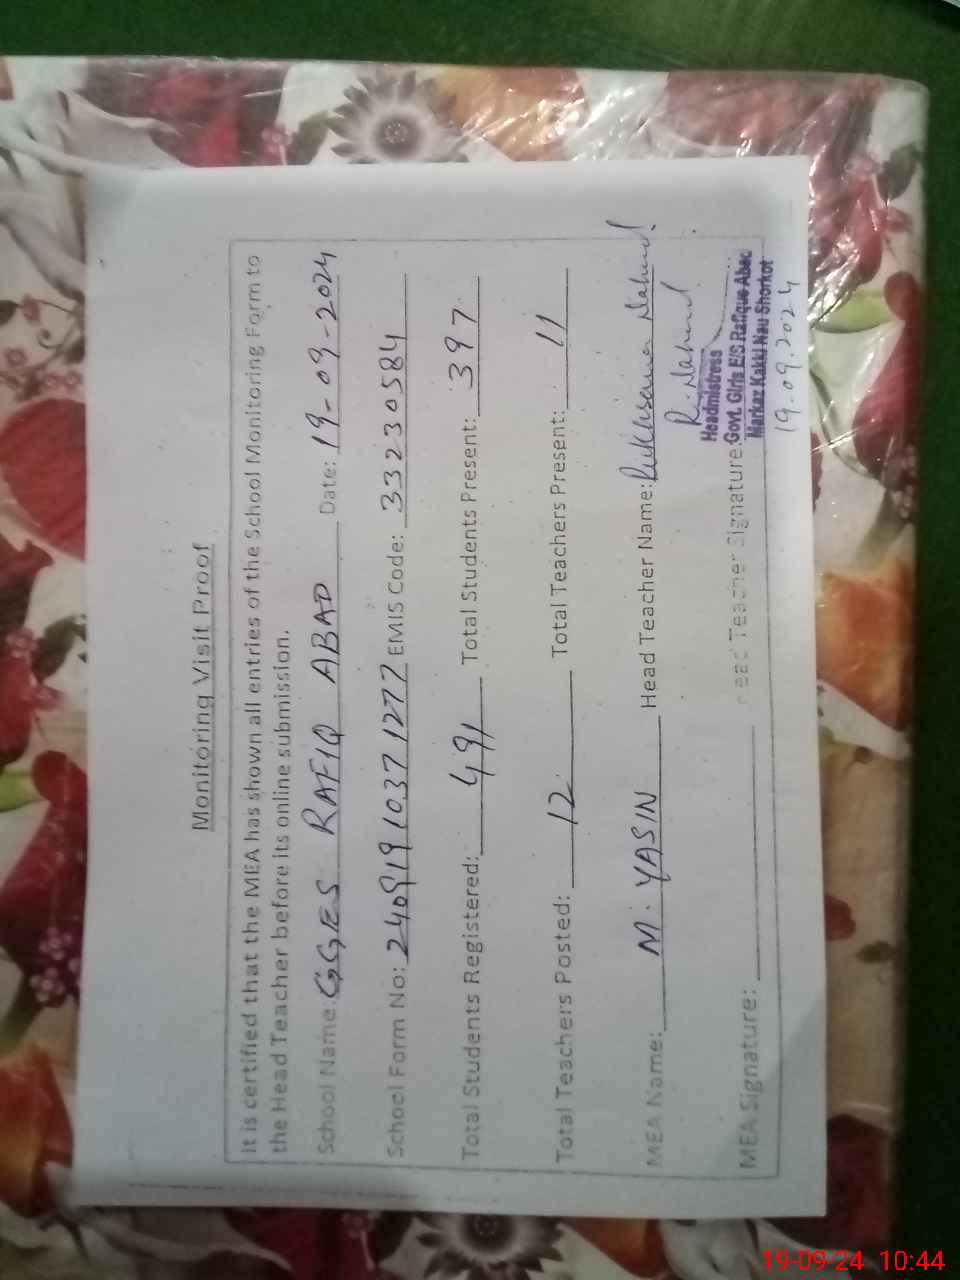 Monitoring Visit Proof
It is certified that the MEA has shown all entries of the School Monitoring Form to
the Head Teacher before its online submission.
School Name: GGES RAFIQ ABAD Date: 19-09-2024
School Form No: 2409191037 1277 EMIS Code: 33230584
Total Students Registered: 491 Total Students Present: 397
Total Teachers Posted: 12 Total Teachers Present: 11
MEA Name: M. YASIN Head Teacher Name: Rukhsana Naheed
R. Naheed
Headmistress
MEA Signature: Head Teacher Signature: Govt. Girls E/S Rafique Abad
Markaz Kakki Nau Shorkot
19.09.2024
19-09-24 10:44